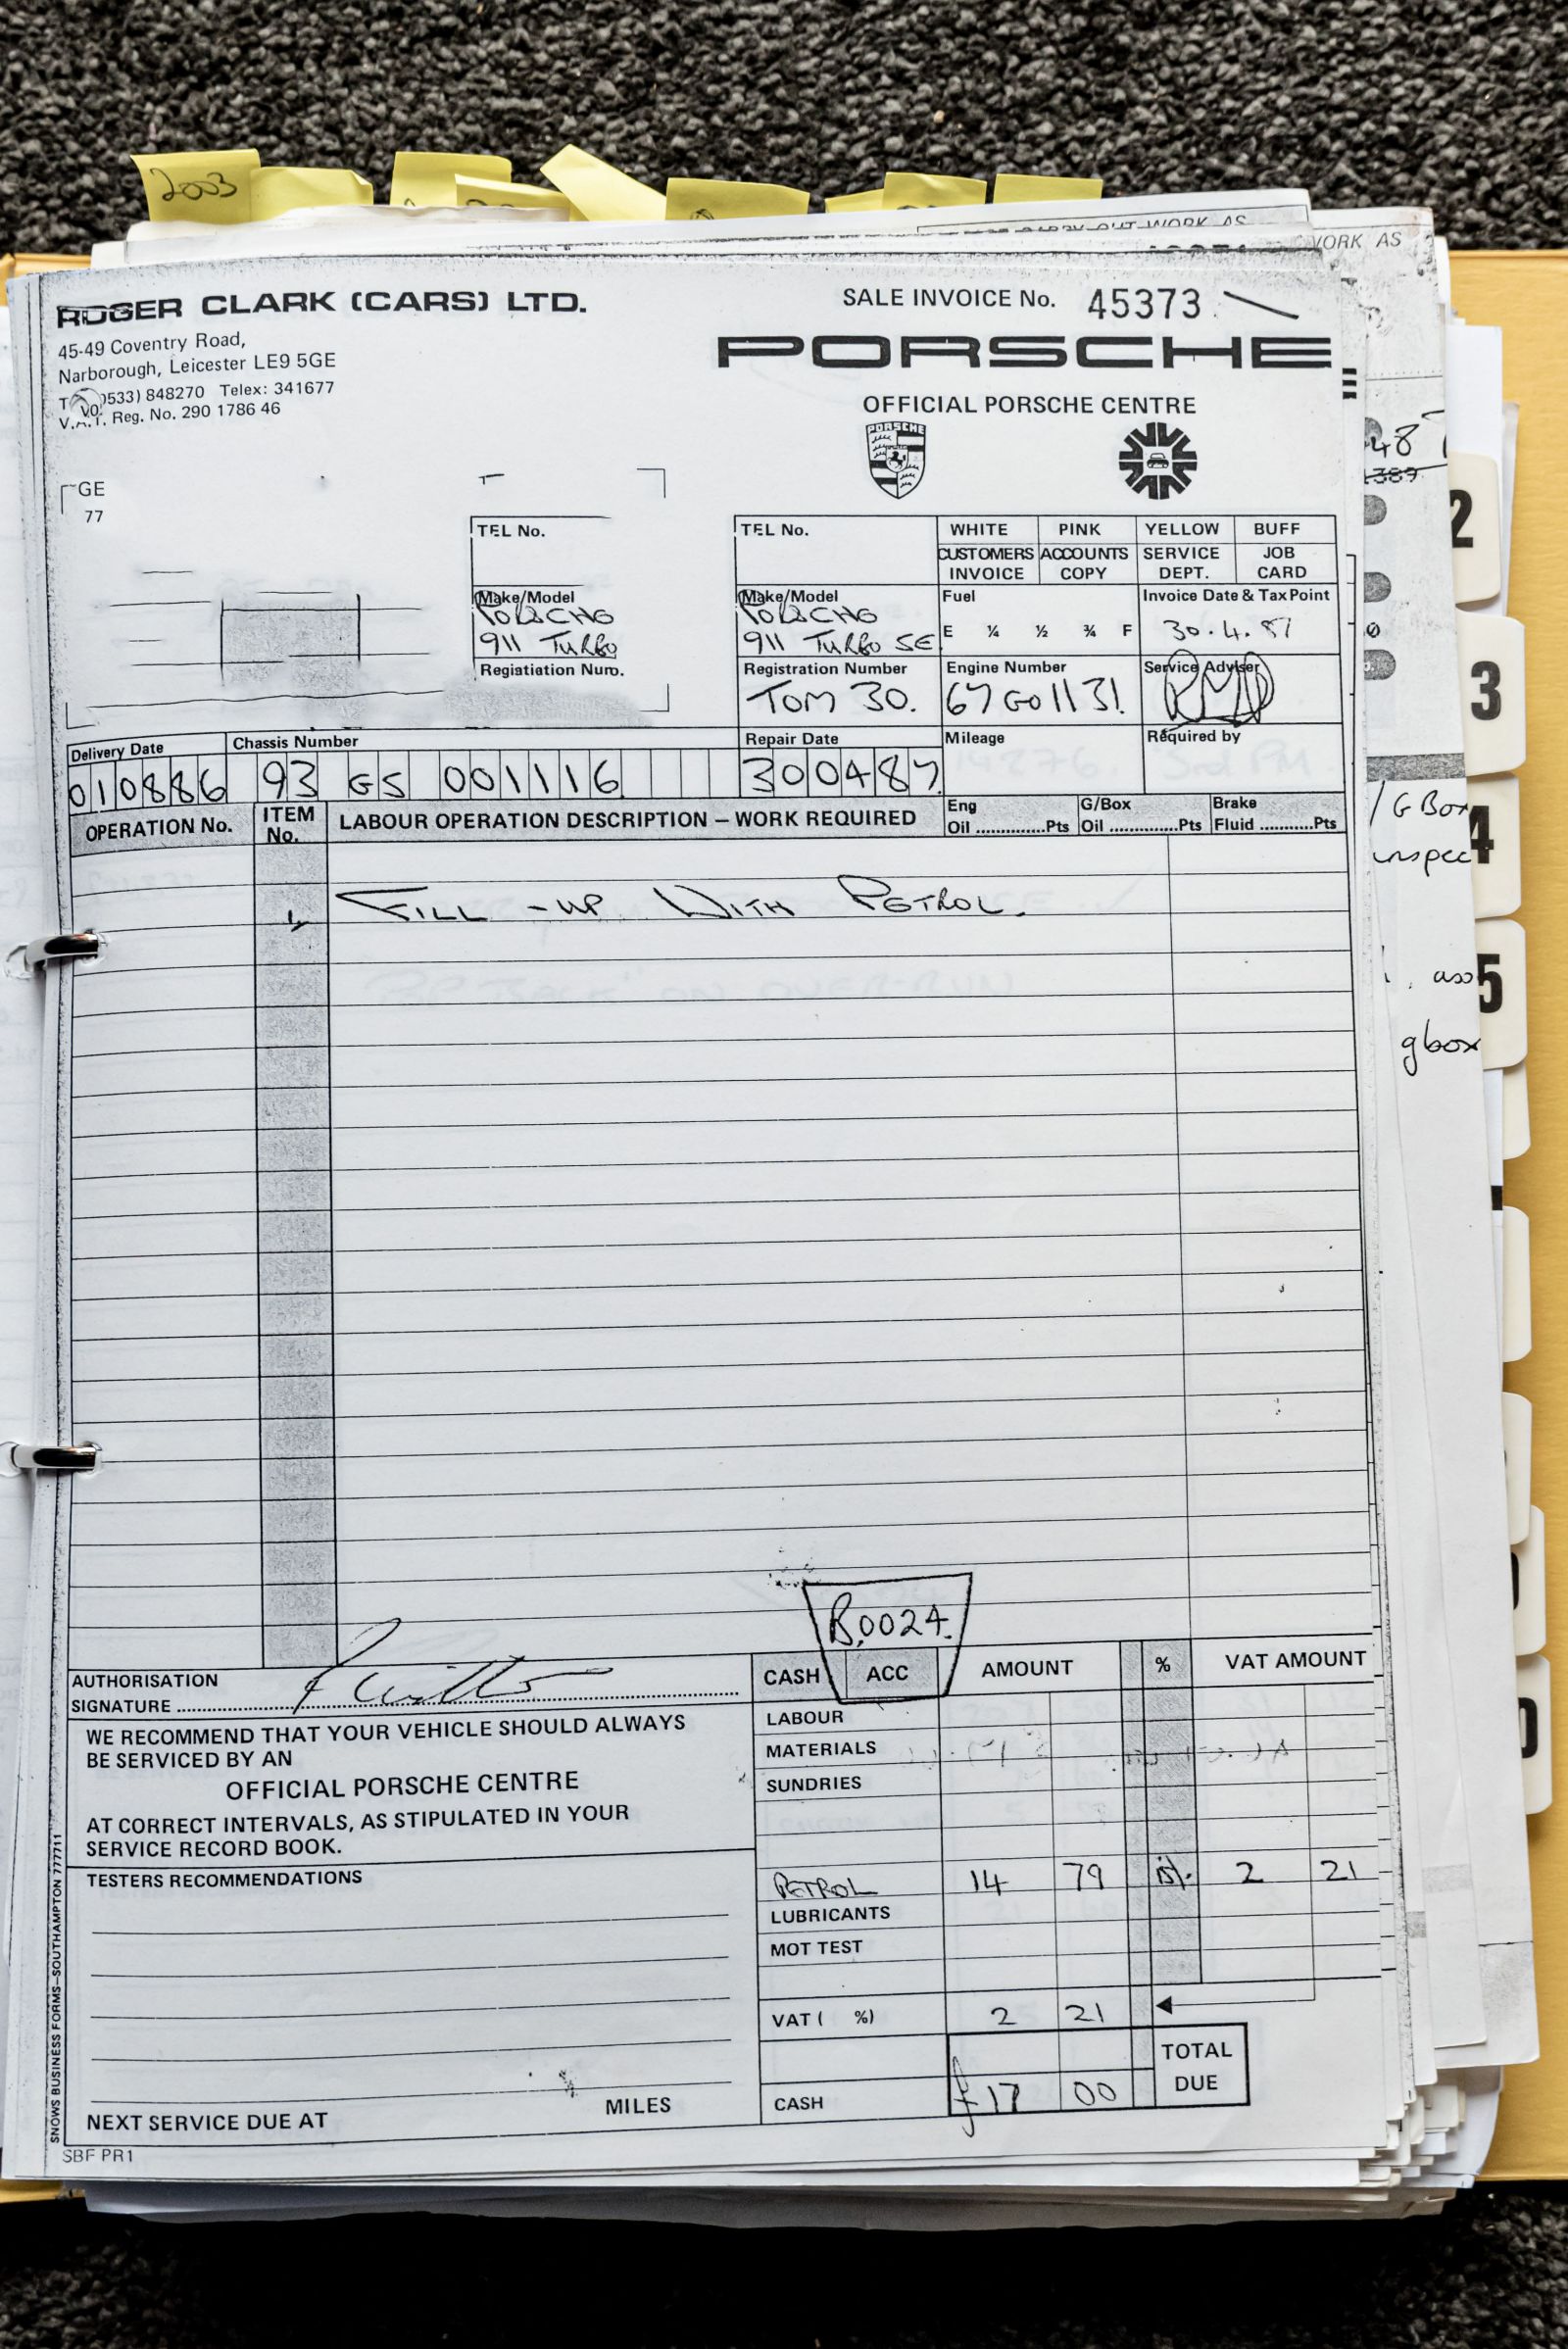 2003
CARRY OUT WORK AS
WORK AS
ROGER CLARK (CARS) LTD.
45-49 Coventry Road,
Narborough, Leicester LE9 5GE
533) 848270 Telex: 341677
V.A.T. Reg. No. 290 1786 46
SALE INVOICE No. 45373
PORSCHE
OFFICIAL PORSCHE CENTRE
PORSCHE
GE
77
TEL No.
TEL No.
WHITE PINK YELLOW BUFF
CUSTOMERS INVOICE
ACCOUNTS COPY
SERVICE DEPT.
JOB CARD
Make/Model
PORSCHE
911 TURBO
Registration Num.
Make/Model
PORSCHE
911 TURBO SE
Fuel
E ¼ ½ ¾ F
Invoice Date & Tax Point
30.4.87
Registration Number
TOM 30.
Engine Number
67G01131.
Service Adviser
Delivery Date
010886
Chassis Number
93 GS 001116
Repair Date
300487
Mileage
14276.
Required by
3rd PM
OPERATION No.
ITEM No.
LABOUR OPERATION DESCRIPTION – WORK REQUIRED
Eng Oil .............Pts
G/Box Oil ..............Pts
Brake Fluid ...........Pts
FILL-UP WITH PETROL.
ON OVER-RUN
B.0024.
AUTHORISATION
SIGNATURE
CASH ACC AMOUNT % VAT AMOUNT
LABOUR
MATERIALS
SUNDRIES
PETROL 14 79 15/. 2 21
LUBRICANTS
MOT TEST
VAT ( %) 2 21
TOTAL DUE
CASH £17 00
WE RECOMMEND THAT YOUR VEHICLE SHOULD ALWAYS
BE SERVICED BY AN
OFFICIAL PORSCHE CENTRE
AT CORRECT INTERVALS, AS STIPULATED IN YOUR
SERVICE RECORD BOOK.
TESTERS RECOMMENDATIONS
NEXT SERVICE DUE AT MILES
SNOWS BUSINESS FORMS—SOUTHAMPTON 777711
SBF PR1
48
1389
/ G Box
inspec
gbox
2
3
4
5